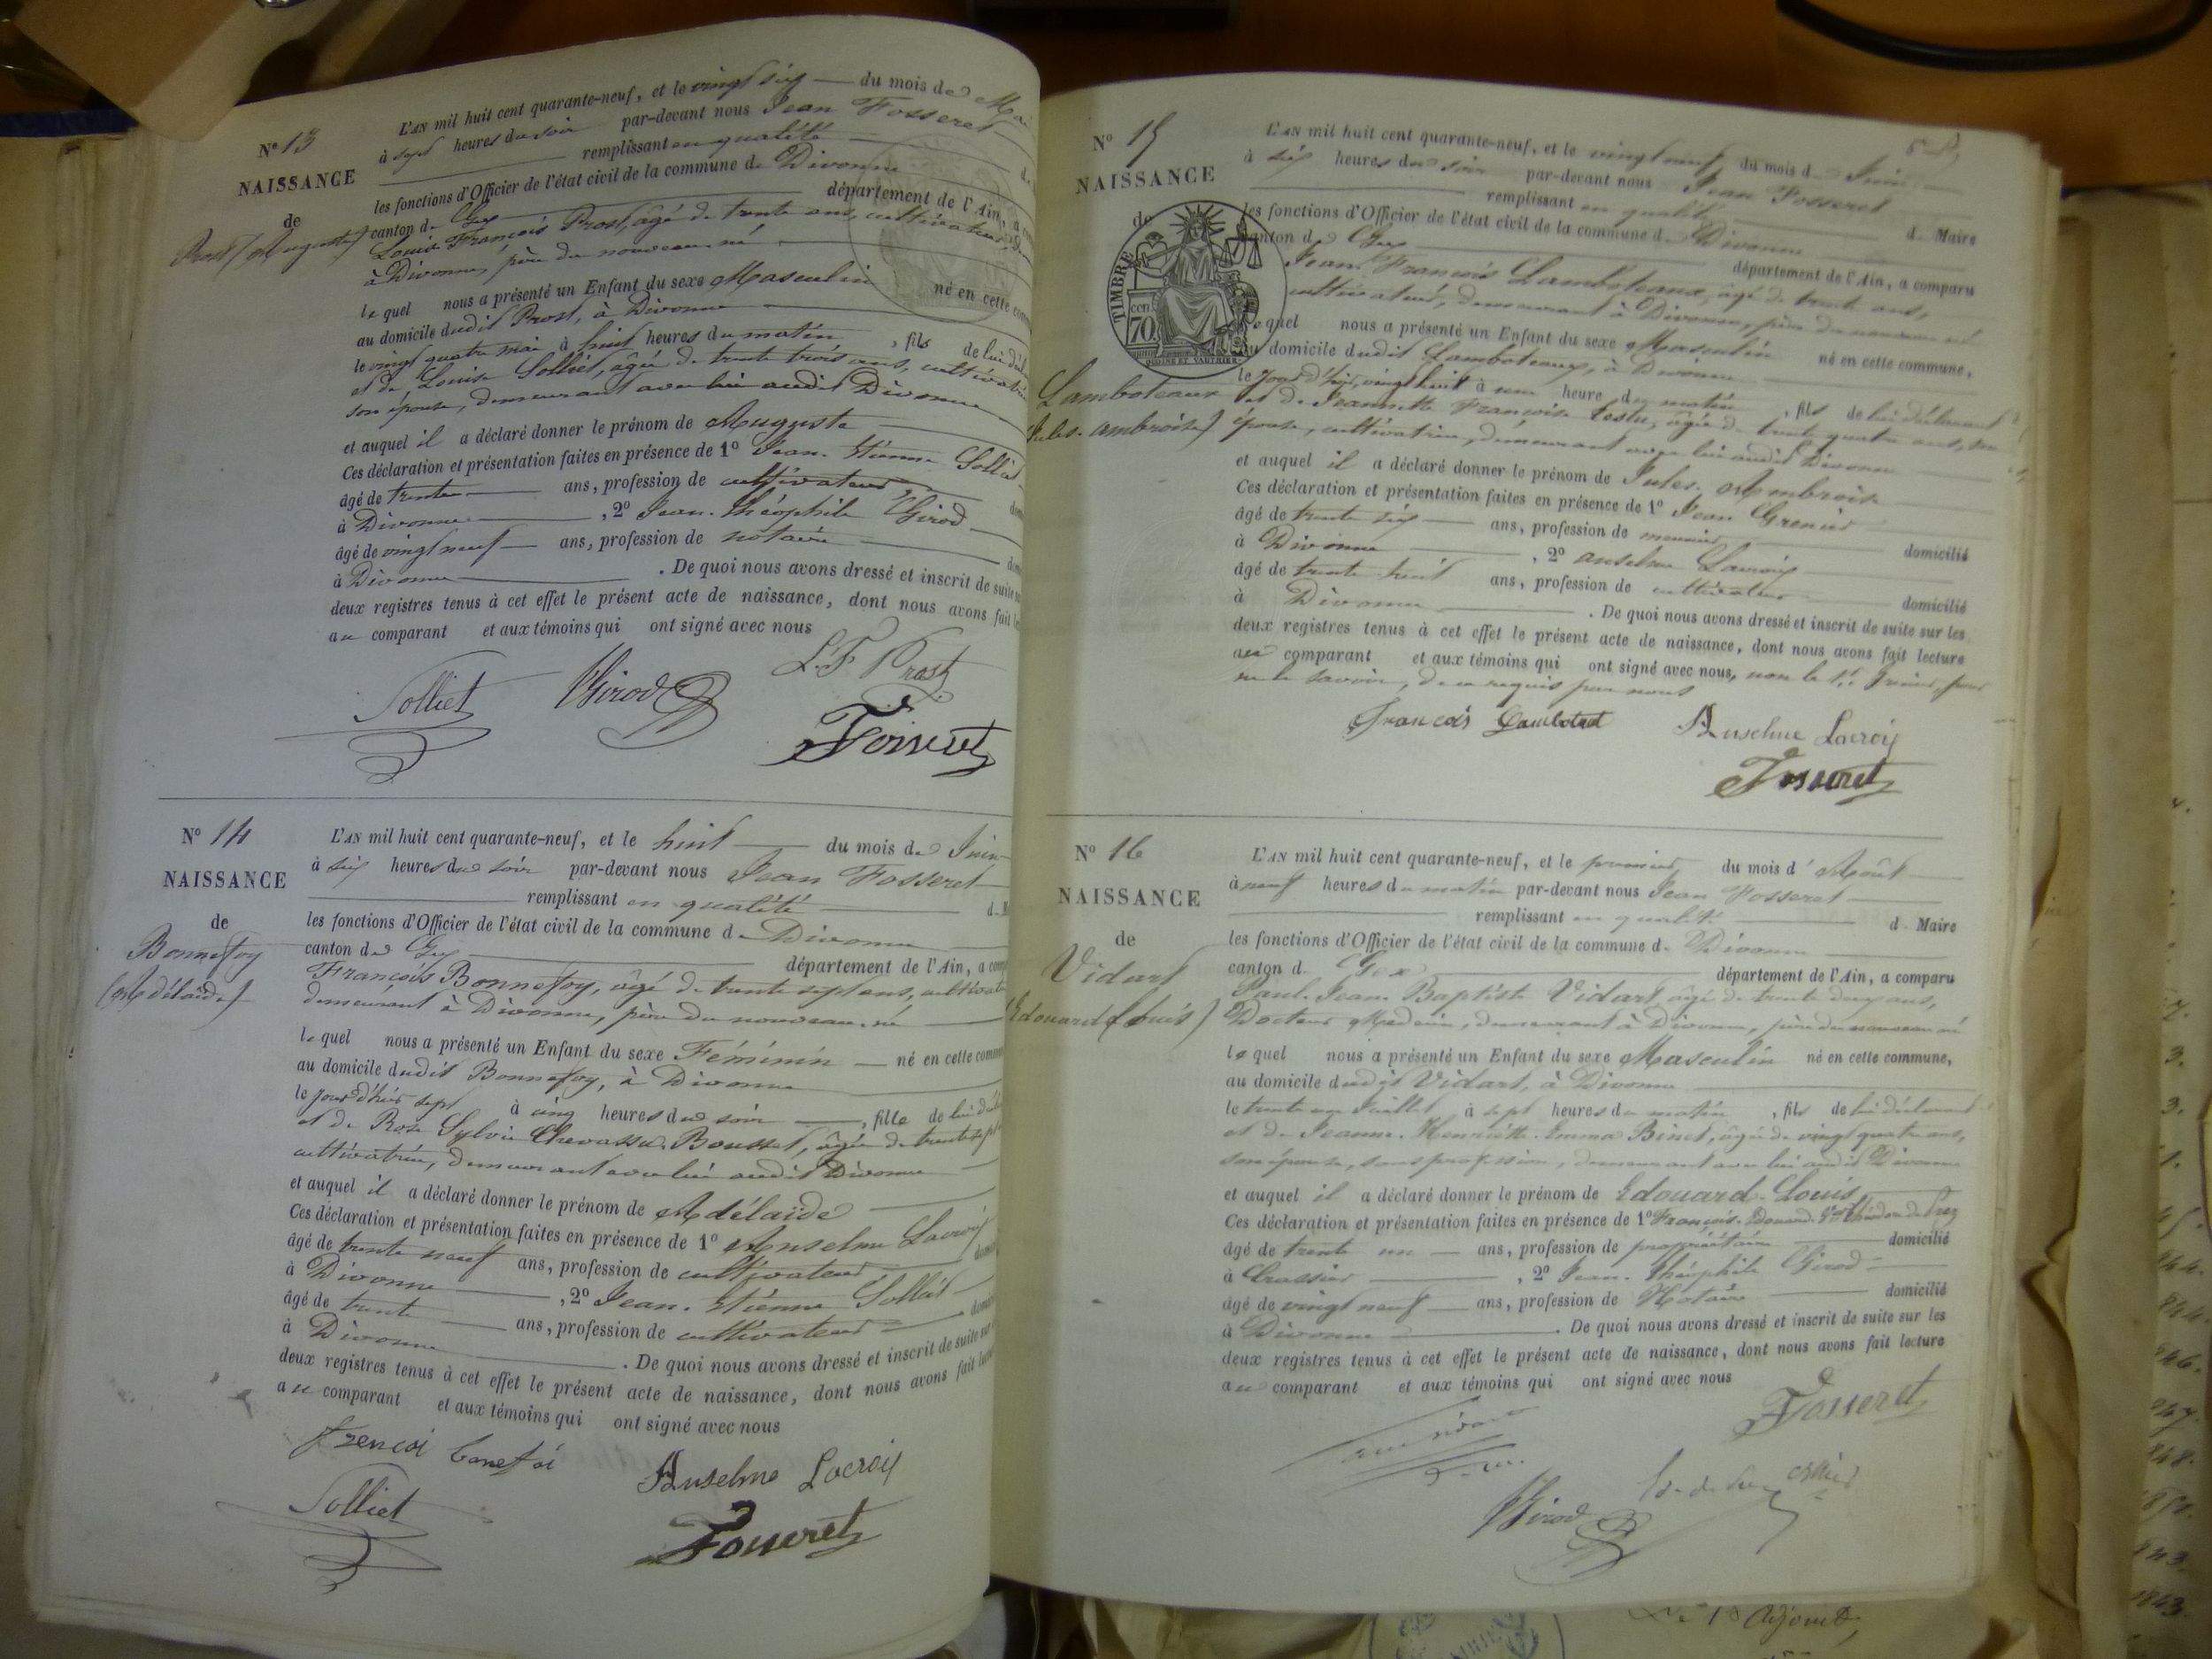 N° 13
NAISSANCE
de
Prost (Auguste)
L'AN mil huit cent quarante-neuf, et le vingt six du mois de Mai
à sept heures du soir par-devant nous Jean Fosseret
remplissant en qualité
les fonctions d'Officier de l'état civil de la commune de Divonne
canton de Gex département de l'Ain, a
Louis François Prost, âgé de trente ans, cultivateur,
à Divonne, père du nouveau-né
lequel nous a présenté un Enfant du sexe Masculin né en cette
au domicile dudit Prost, à Divonne
le vingt quatre mai à huit heures du matin, fils de lui
et de Louise Solliet, âgée de trente trois ans, cultivatrice
son épouse, demeurant avec lui audit Divonne
et auquel il a déclaré donner le prénom de Auguste
Ces déclaration et présentation faites en présence de 1° Jean-Etienne Solliet
âgé de trente ans, profession de cultivateur
à Divonne, 2° Jean-Théophile Girod
âgé de vingt neuf ans, profession de notaire
à Divonne. De quoi nous avons dressé et inscrit de suite
deux registres tenus à cet effet le présent acte de naissance, dont nous avons fait
au comparant et aux témoins qui ont signé avec nous
L. F. Prost
Solliet Girod
Fosseret
N° 14
NAISSANCE
de
Bonnefoy
(Adélaïde)
L'AN mil huit cent quarante-neuf, et le huit du mois de Juin
à six heures du soir par-devant nous Jean Fosseret
remplissant en qualité d. M
les fonctions d'Officier de l'état civil de la commune de Divonne
canton de Gex département de l'Ain, a
François Bonnefoy, âgé de trente sept ans, cultivateur
demeurant à Divonne, père du nouveau-né
lequel nous a présenté un Enfant du sexe Féminin né en cette
au domicile dudit Bonnefoy, à Divonne
le jour d'hier sept à cinq heures du soir, fille de lui
et de Rose Sylvie Chevassu-Bousset, âgée de trente sept
cultivatrice, demeurant avec lui audit Divonne
et auquel il a déclaré donner le prénom de Adélaïde
Ces déclaration et présentation faites en présence de 1° Anselme Lacroix
âgé de trente neuf ans, profession de cultivateur
à Divonne, 2° Jean-Etienne Solliet
âgé de trente ans, profession de cultivateur
à Divonne. De quoi nous avons dressé et inscrit de suite sur
deux registres tenus à cet effet le présent acte de naissance, dont nous avons fait
au comparant et aux témoins qui ont signé avec nous
Anselme Lacroix
Solliet
Fosseret
N° 15
NAISSANCE
de
TIMBRE
70 cen
Lamboteaux
(Jules-ambroise)
L'AN mil huit cent quarante-neuf, et le vingt neuf du mois de Juin
à six heures du soir par-devant nous Jean Fosseret
remplissant en qualité d. Maire
les fonctions d'Officier de l'état civil de la commune de Divonne
canton de Gex département de l'Ain, a comparu
Jean-François Lamboteaux, âgé de trente ans,
cultivateur, demeurant à Divonne, père du nouveau né
lequel nous a présenté un Enfant du sexe Masculin né en cette commune,
au domicile dudit Lamboteaux, à Divonne
le jour d'hier, vingt huit à une heure du matin, fils de lui déclarant
et de Jeannette Françoise Testu, âgée de trente quatre ans, son
épouse, cultivatrice, demeurant avec lui audit Divonne
et auquel il a déclaré donner le prénom de Jules-Ambroise
Ces déclaration et présentation faites en présence de 1° Jean Grenier
âgé de trente six ans, profession de meunier domicilié
à Divonne, 2° anselme Lacroix
âgé de trente huit ans, profession de cultivateur domicilié
à Divonne. De quoi nous avons dressé et inscrit de suite sur les
deux registres tenus à cet effet le présent acte de naissance, dont nous avons fait lecture
au comparant et aux témoins qui ont signé avec nous, non le Sr. Grenier, pour
ne le savoir, de ce requis par nous
François Anselme Lacroix
Fosseret
N° 16
NAISSANCE
de
Vidart
(Edouard Louis)
L'AN mil huit cent quarante-neuf, et le premier du mois d'Août
à neuf heures du matin par-devant nous Jean Fosseret
remplissant en qualité d. Maire
les fonctions d'Officier de l'état civil de la commune de Divonne
canton d. Gex département de l'Ain, a comparu
Paul-Jean-Baptiste Vidart, âgé de trente deux ans,
Docteur Médecin, demeurant à Divonne, père du nouveau né
lequel nous a présenté un Enfant du sexe Masculin né en cette commune,
au domicile dudit Vidart, à Divonne
le trente un Juillet à sept heures du matin, fils de lui déclarant
et de Jeanne-Henriette-Emma Binet, âgée de vingt quatre ans,
son épouse, sans profession, demeurant avec lui audit Divonne
et auquel il a déclaré donner le prénom de Edouard-Louis
Ces déclaration et présentation faites en présence de 1° François-Edouard
âgé de trente un ans, profession de propriétaire domicilié
à Crassier, 2° Jean-Théophile Girod
âgé de vingt neuf ans, profession de Notaire domicilié
à Divonne. De quoi nous avons dressé et inscrit de suite sur les
deux registres tenus à cet effet le présent acte de naissance, dont nous avons fait lecture
au comparant et aux témoins qui ont signé avec nous
Fosseret
Girod